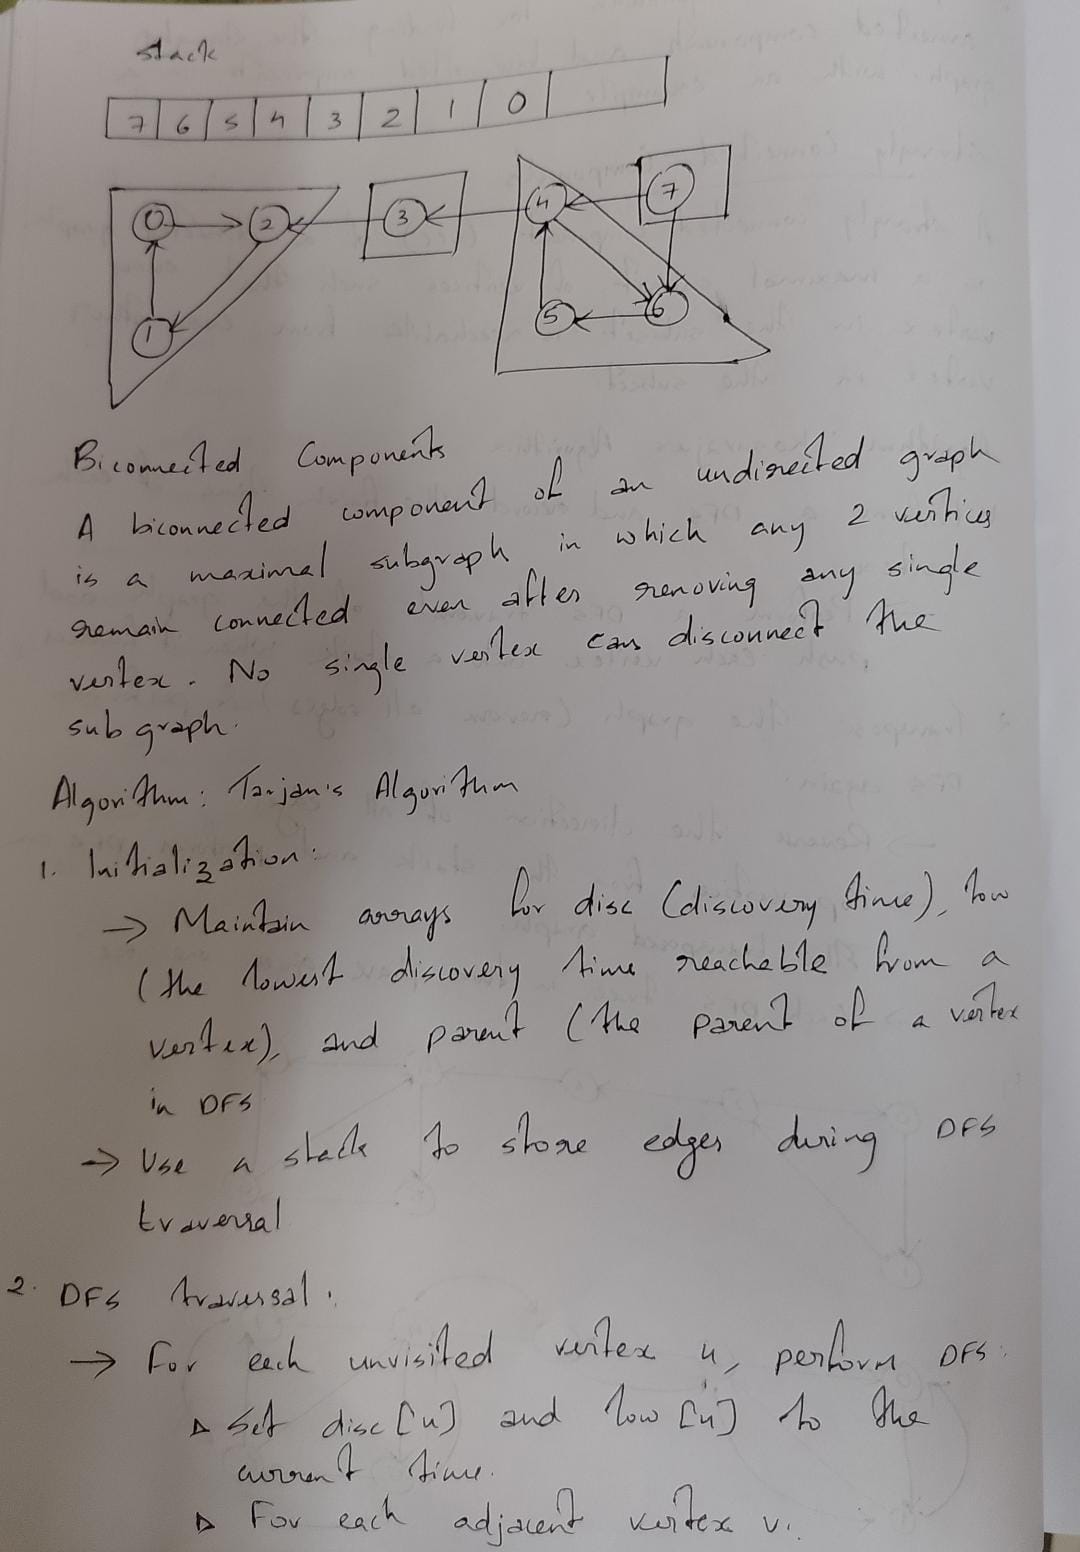 stack
7 6 5 4 3 2 1 0
0 2 3 4 7
1 5 6
Biconnected Components
A biconnected component of an undirected graph
is a maximal subgraph in which any 2 vertices
remain connected even after removing any single
vertex. No single vertex can disconnect the
sub graph.
Algorithm: Tarjan's Algorithm
1. Initialization:
→ Maintain arrays for disc (discovery time), low
(the lowest discovery time reachable from a
vertex), and parent (the parent of a vertex
in DFS
→ Use a stack to store edges during DFS
traversal
2. DFS traversal:
→ For each unvisited vertex u, perform DFS:
▷ Set disc[u] and low[u] to the
current time.
▷ For each adjacent vertex v: